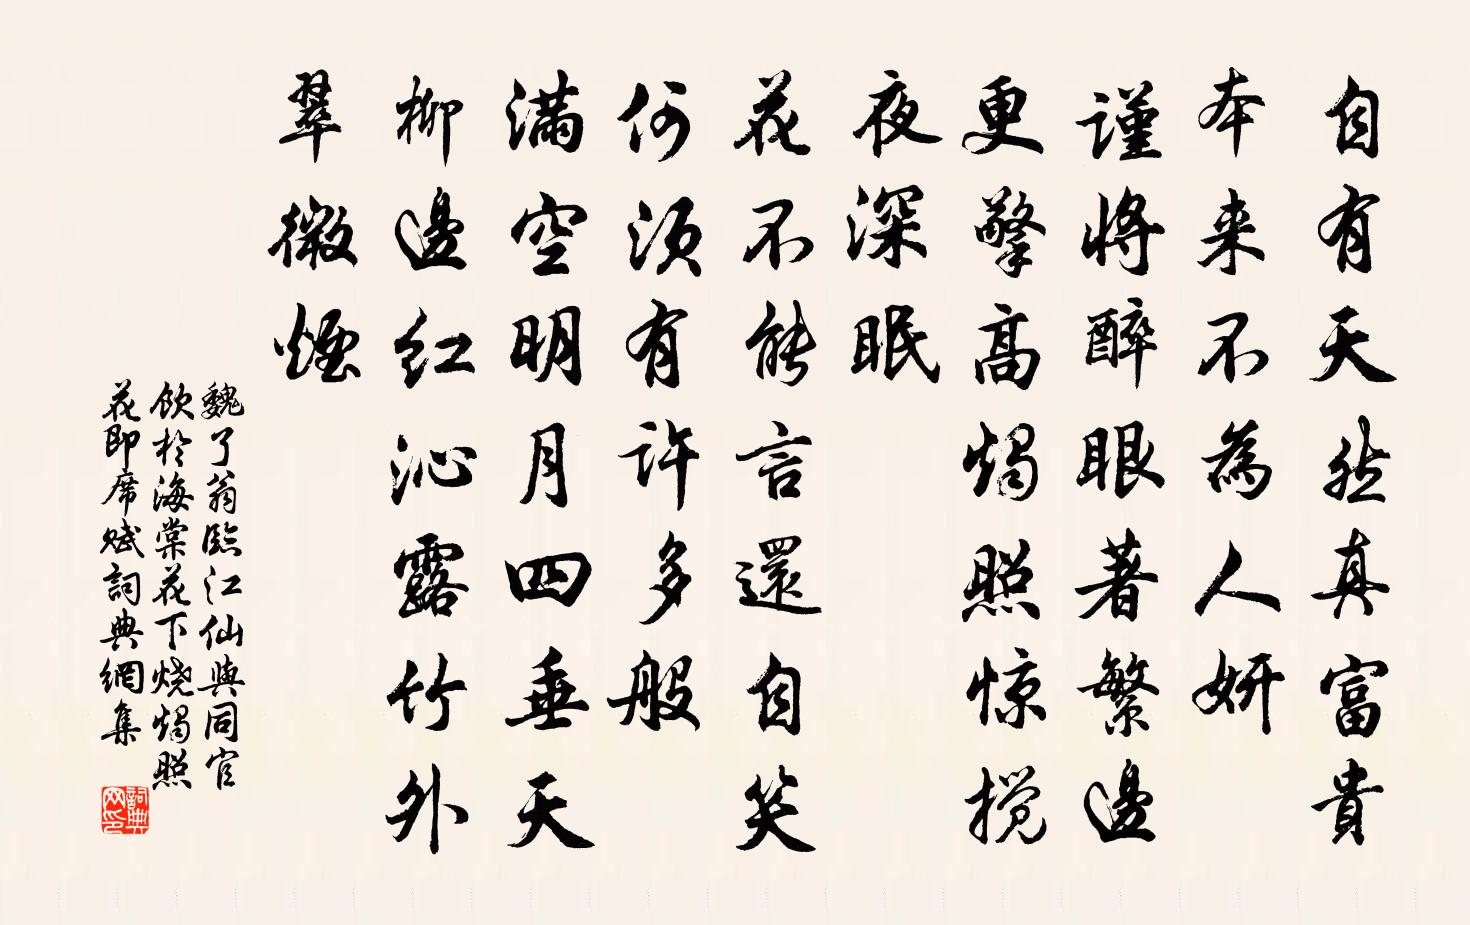 自有天然真富貴
本来不為人妍
謹将醉眼著繁邊
更擎高燭照惊搅
夜深眠
花不能言還自笑
何須有许多般
满空明月四垂天
柳邊红沁露竹外
翠微煙
魏了翁臨江仙與同官
飲於海棠花下燒燭照
花即席赋詞典網集
詞典网印